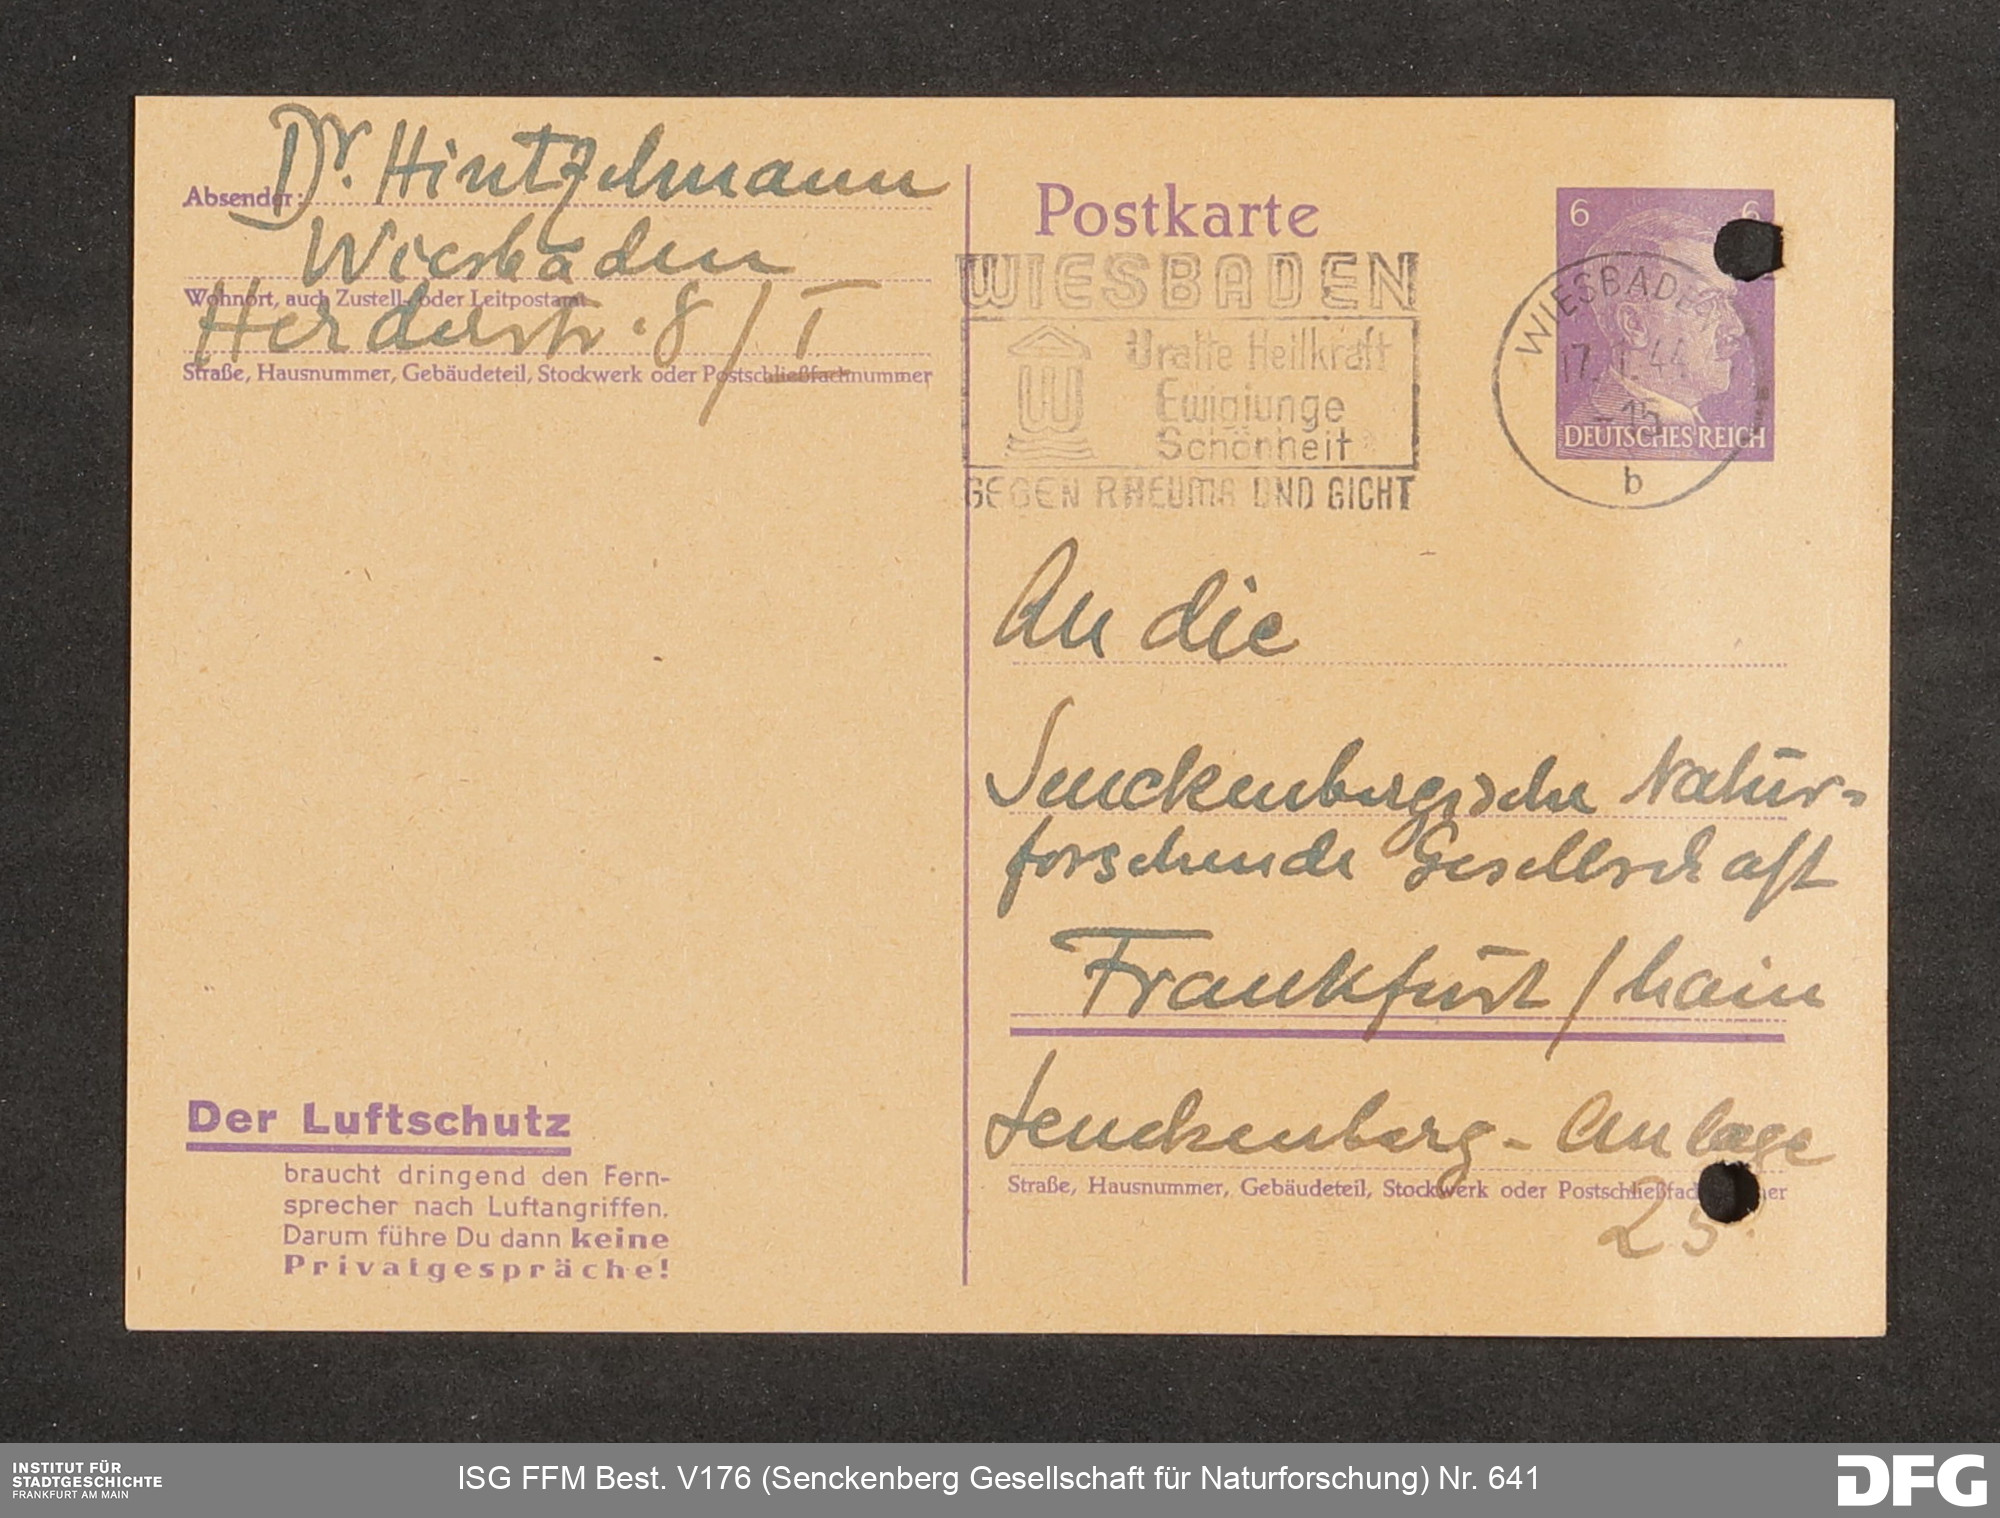 Dr. Hintzelmann
Absender:
Wiesbaden
Wohnort, auch Zustell- oder Leitpostamt
Herderstr. 8/I
Straße, Hausnummer, Gebäudeteil, Stockwerk oder Postschließfachnummer
Postkarte
6 6
WIESBADEN
Uralte Heilkraft
Ewigjunge
Schönheit
GEGEN RHEUMA UND GICHT
WIESBADEN
17.1.44
-15
b
DEUTSCHES REICH
An die
Senckenbergische Natur-
forschende Gesellschaft
Frankfurt/Main
Senckenberg-Anlage
Straße, Hausnummer, Gebäudeteil, Stockwerk oder Postschließfach
25.
Der Luftschutz
braucht dringend den Fern-
sprecher nach Luftangriffen.
Darum führe Du dann keine
Privatgespräche!
INSTITUT FÜR
STADTGESCHICHTE
FRANKFURT AM MAIN
ISG FFM Best. V176 (Senckenberg Gesellschaft für Naturforschung) Nr. 641
DFG